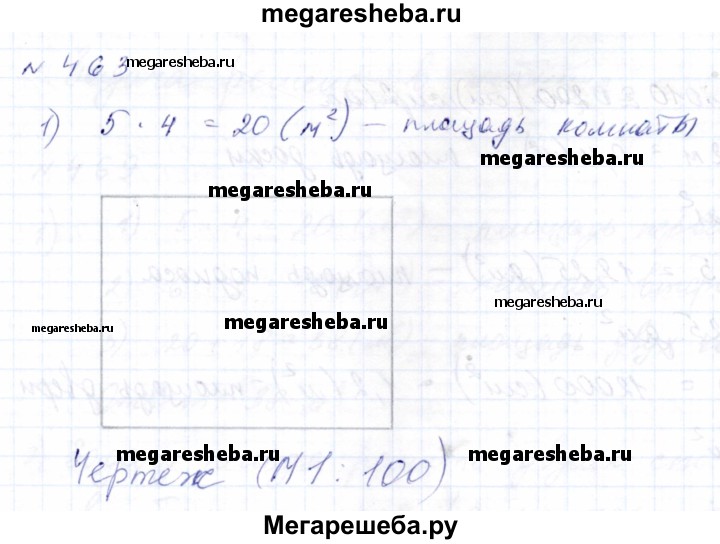 megaresheba.ru
№ 463 megaresheba.ru
1) 5 · 4 = 20 (м²) — площадь комнаты
megaresheba.ru
megaresheba.ru
megaresheba.ru
megaresheba.ru
megaresheba.ru
megaresheba.ru
megaresheba.ru
Чертеж (М 1 : 100)
Мегарешеба.ру